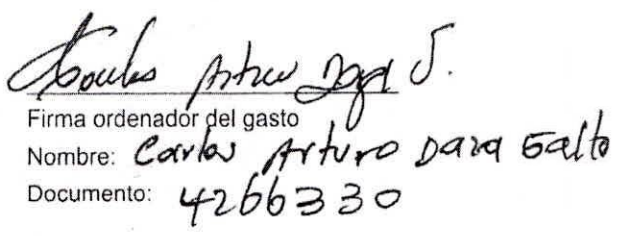 Carlos Arturo Daza S.
Firma ordenador del gasto
Nombre: Carlos Arturo Daza Salto
Documento: 4266330